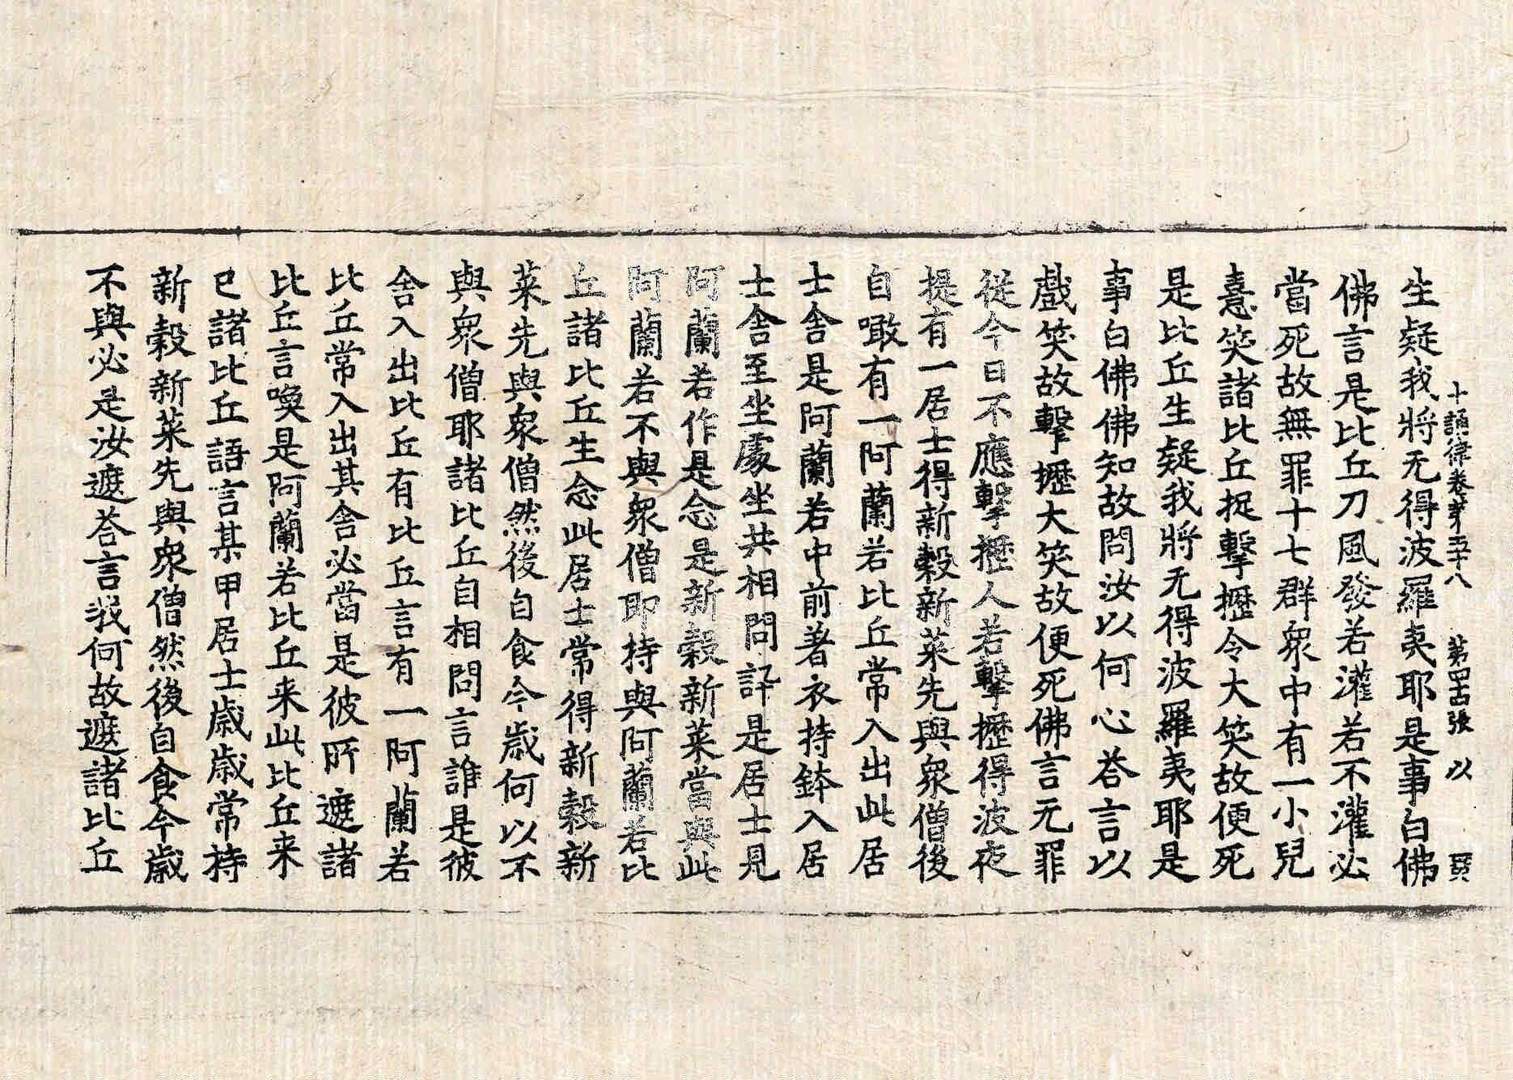 十誦律卷第五十八 第四古張 以
生疑我將无得波羅夷耶是事白佛
佛言是比丘刀風發若灌若不灌必
當死故無罪十七群衆中有一小兒
憙笑諸比丘捉擊攊令大笑故便死
是比丘生疑我將无得波羅夷耶是
事白佛佛知故問汝以何心荅言以
戲笑故擊攊大笑故便死佛言无罪
從今日不應擊攊人若擊攊得波夜
提有一居士得新穀新菜先與衆僧後
自噉有一阿蘭若比丘常入出此居
士舍是阿蘭若中前著衣持鉢入居
士舍至坐處坐共相問訊是居士見
阿蘭若作是念是新穀新菜當與此
阿蘭若不與衆僧即持與阿蘭若比
丘諸比丘生念此居士常得新穀新
菜先與衆僧然後自食今歳何以不
與衆僧耶諸比丘自相問言誰是彼
舍入出比丘有比丘言有一阿蘭若
比丘常入出其舍必當是彼所遮諸
比丘言喚是阿蘭若比丘来此比丘来
已諸比丘語言某甲居士歳歳常持
新穀新菜先與衆僧然後自食今歳
不與必是汝遮荅言我何故遮諸比丘